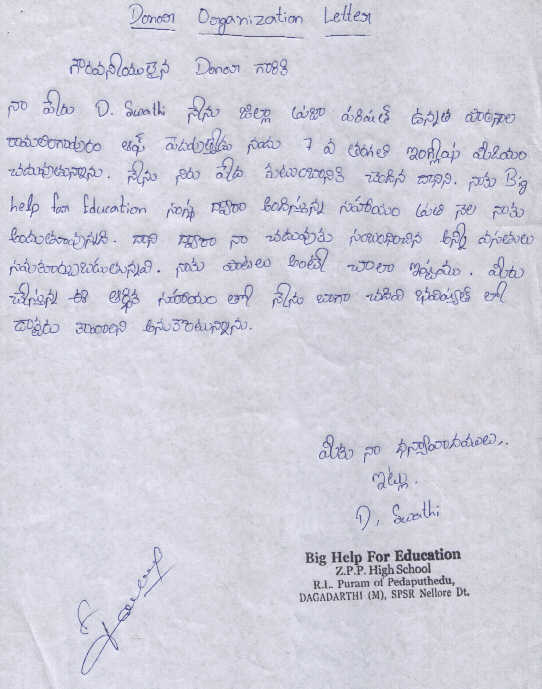 Donor Organization Letter
గౌరవనీయులైన Donor గారికి
నా పేరు D. Swathi నేను జిల్లా ప్రజా పరిషత్ ఉన్నత పాఠశాల
రామలింగాపురం ఆఫ్ పెదపుత్తేడు నందు 7 వ తరగతి ఇంగ్లీషు మీడియం
చదువుతున్నాను. నేను నిరు పేద కుటుంబానికి చెందిన దానిని. నాకు Big
help for Education సంస్థ ద్వారా అందిస్తున్న సహాయం ప్రతి నెల నాకు
అందుతూవున్నది. దాని ద్వారా నా చదువుకు సంబంధించిన అన్ని వసతులు
సమకూర్చుబడుతున్నవి. నాకు పాటలు అంటే చాలా ఇష్టము. మీరు
చేస్తున్న ఈ ఆర్థిక సహాయం తో నేను బాగా చదివి భవిష్యత్ లో
డాక్టరు కావాలని అనుకొంటున్నాను.
మీకు నా ధన్యవాదములు..
ఇట్లు.
D. Swathi
Big Help For Education
Z.P.P. High School
R.L. Puram of Pedaputhedu,
DAGADARTHI (M), SPSR Nellore Dt.